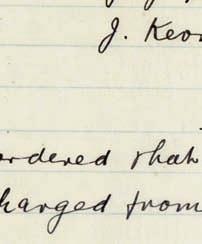 J. Keo
ordered that
charged from